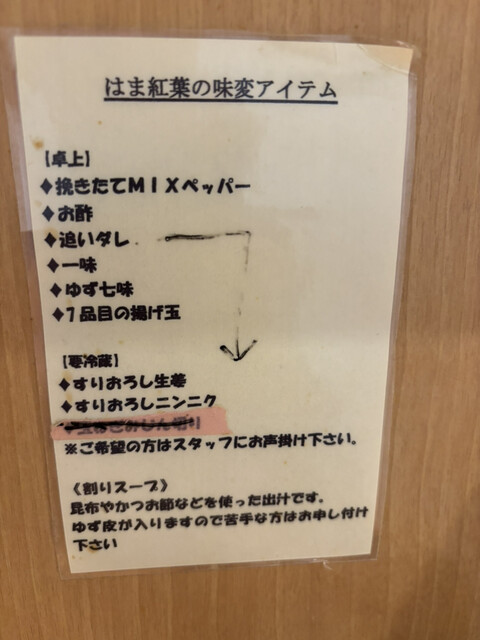 はま紅葉の味変アイテム
【卓上】
♦挽きたてMIXペッパー
♦お酢
♦追いダレ
♦一味
♦ゆず七味
♦7品目の揚げ玉
【要冷蔵】
♦すりおろし生姜
♦すりおろしニンニク
みじん切り
※ご希望の方はスタッフにお声掛け下さい。
《割りスープ》
昆布やかつお節などを使った出汁です。
ゆず皮が入りますので苦手な方はお申し付け
下さい